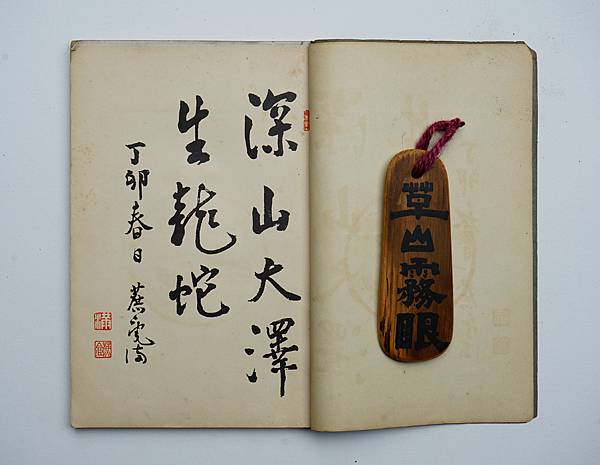 深山大澤
生龍蛇
丁卯春日
草山霧眼